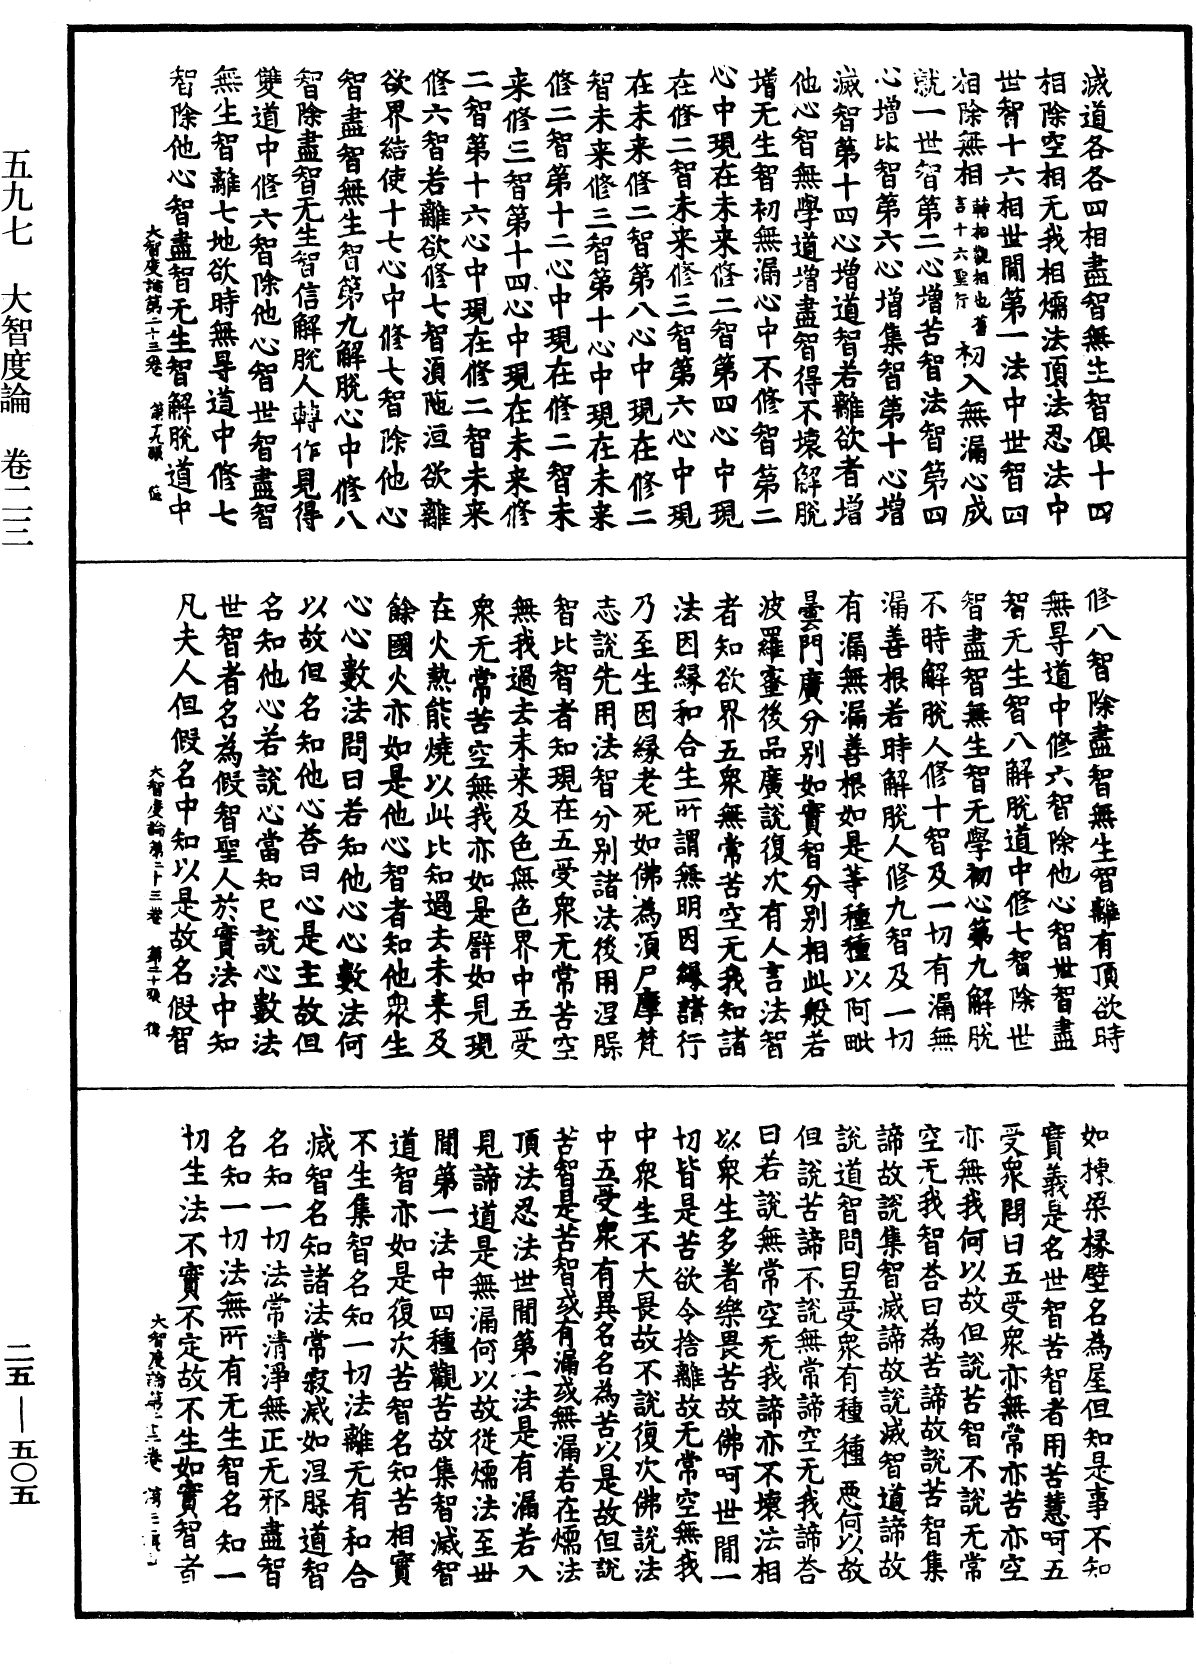 五九七　大智度論　卷二三
滅道各各四相盡智無生智俱十四
相除空相无我相燸法頂法忍法中
世智十六相世閒第一法中世智四
相除無相轉相觀相也舊言十六聖行初入無漏心成
就一世智第二心增苦智法智第四
心增比智第六心增集智第十心增
滅智第十四心增道智若離欲者增
他心智無學道增盡智得不壞解脫
增无生智初無漏心中不修智第二
心中現在未来修二智第四心中現
在修二智未来修三智第六心中現
在未来修二智第八心中現在修二
智未来修三智第十心中現在未来
修二智第十二心中現在修二智未
来修三智第十四心中現在未来修
二智第十六心中現在修二智未来
修六智若離欲修七智湏陁洹欲離
欲界結使十七心中修七智除他心
智盡智無生智第九解脫心中修八
智除盡智无生智信解脫人轉作見得
雙道中修六智除他心智世智盡智
無生智離七地欲時無㝵道中修七
智除他心智盡智无生智解脫道中
大智度論第二十三卷　第十九張
修八智除盡智無生智離有頂欲時
無㝵道中修六智除他心智世智盡
智无生智八解脫道中修七智除世
智盡智無生智无學初心第九解脫
不時解脫人修十智及一切有漏無
漏善根若時解脫人修九智及一切
有漏無漏善根如是等種種以阿毗
曇門廣分別如實智分別相此般若
波羅蜜後品廣說復次有人言法智
者知欲界五衆無常苦空无我知諸
法因縁和合生所謂無明因縁諸行
乃至生因縁老死如佛為湏尸摩梵
志說先用法智分別諸法後用涅槃
智比智者知現在五受衆无常苦空
無我過去未来及色無色界中五受
衆无常苦空無我亦如是譬如見現
在火熱能燒以此比知過去未来及
餘國火亦如是他心智者知他衆生
心心數法問曰若知他心心數法何
以故但名知他心荅曰心是主故但
名知他心若說心當知已說心數法
世智者名為假智聖人於實法中知
凡夫人但假名中知以是故名假智
大智度論第二十三卷　第二十張
如棟梁椽壁名為屋但知是事不知
實義是名世智苦智者用苦慧呵五
受衆問曰五受衆亦無常亦苦亦空
亦無我何以故但說苦智不說无常
空无我智荅曰為苦諦故說苦智集
諦故說集智滅諦故說滅智道諦故
說道智問曰五受衆有種種惡何以故
但說苦諦不說無常諦空无我諦荅
曰若說無常空无我諦亦不壞法相
以衆生多著樂畏苦故佛呵世閒一
切皆是苦欲令捨離故无常空無我
中衆生不大畏故不說復次佛說法
中五受衆有異名名為苦以是故但說
苦智是苦智或有漏或無漏若在燸法
頂法忍法世閒第一法是有漏若入
見諦道是無漏何以故從燸法至世
閒第一法中四種觀苦故集智滅智
道智亦如是復次苦智名知苦相實
不生集智名知一切法離无有和合
滅智名知諸法常寂滅如涅槃道智
名知一切法常清淨無正无邪盡智
名知一切法無所有无生智名知一
切生法不實不定故不生如實智者
大智度論第二十三卷
二五—五〇五